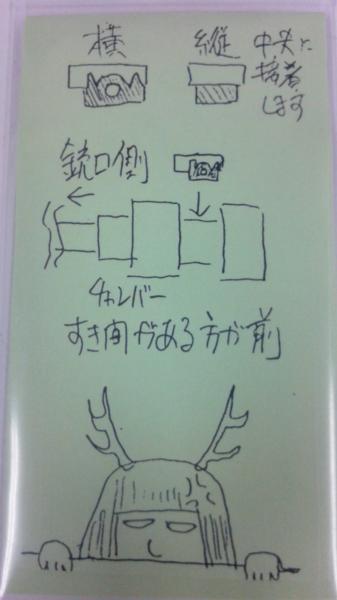 横
縦
中央に
接着
します
銃口側
チャンバー
すき間がある方が前